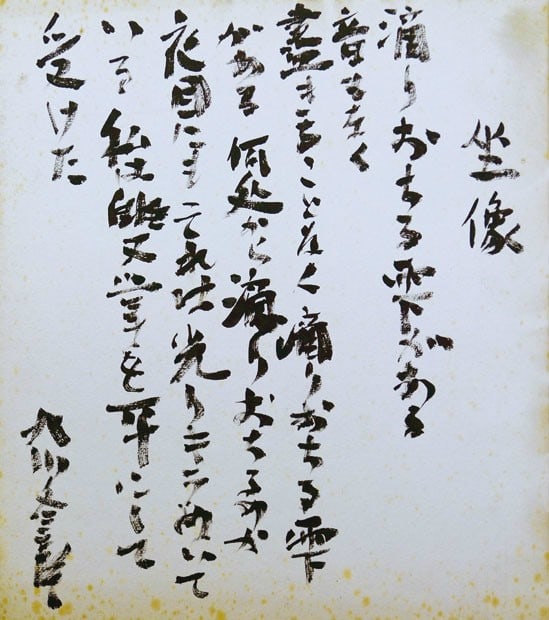 坐像
滴りおちる雫がある
音もなく
盡きることなく滴りおちる雫
がある 何処から滴りおちるのか
花園にも それは光りきらめいて
いる 私は 掌を平にして
受けた